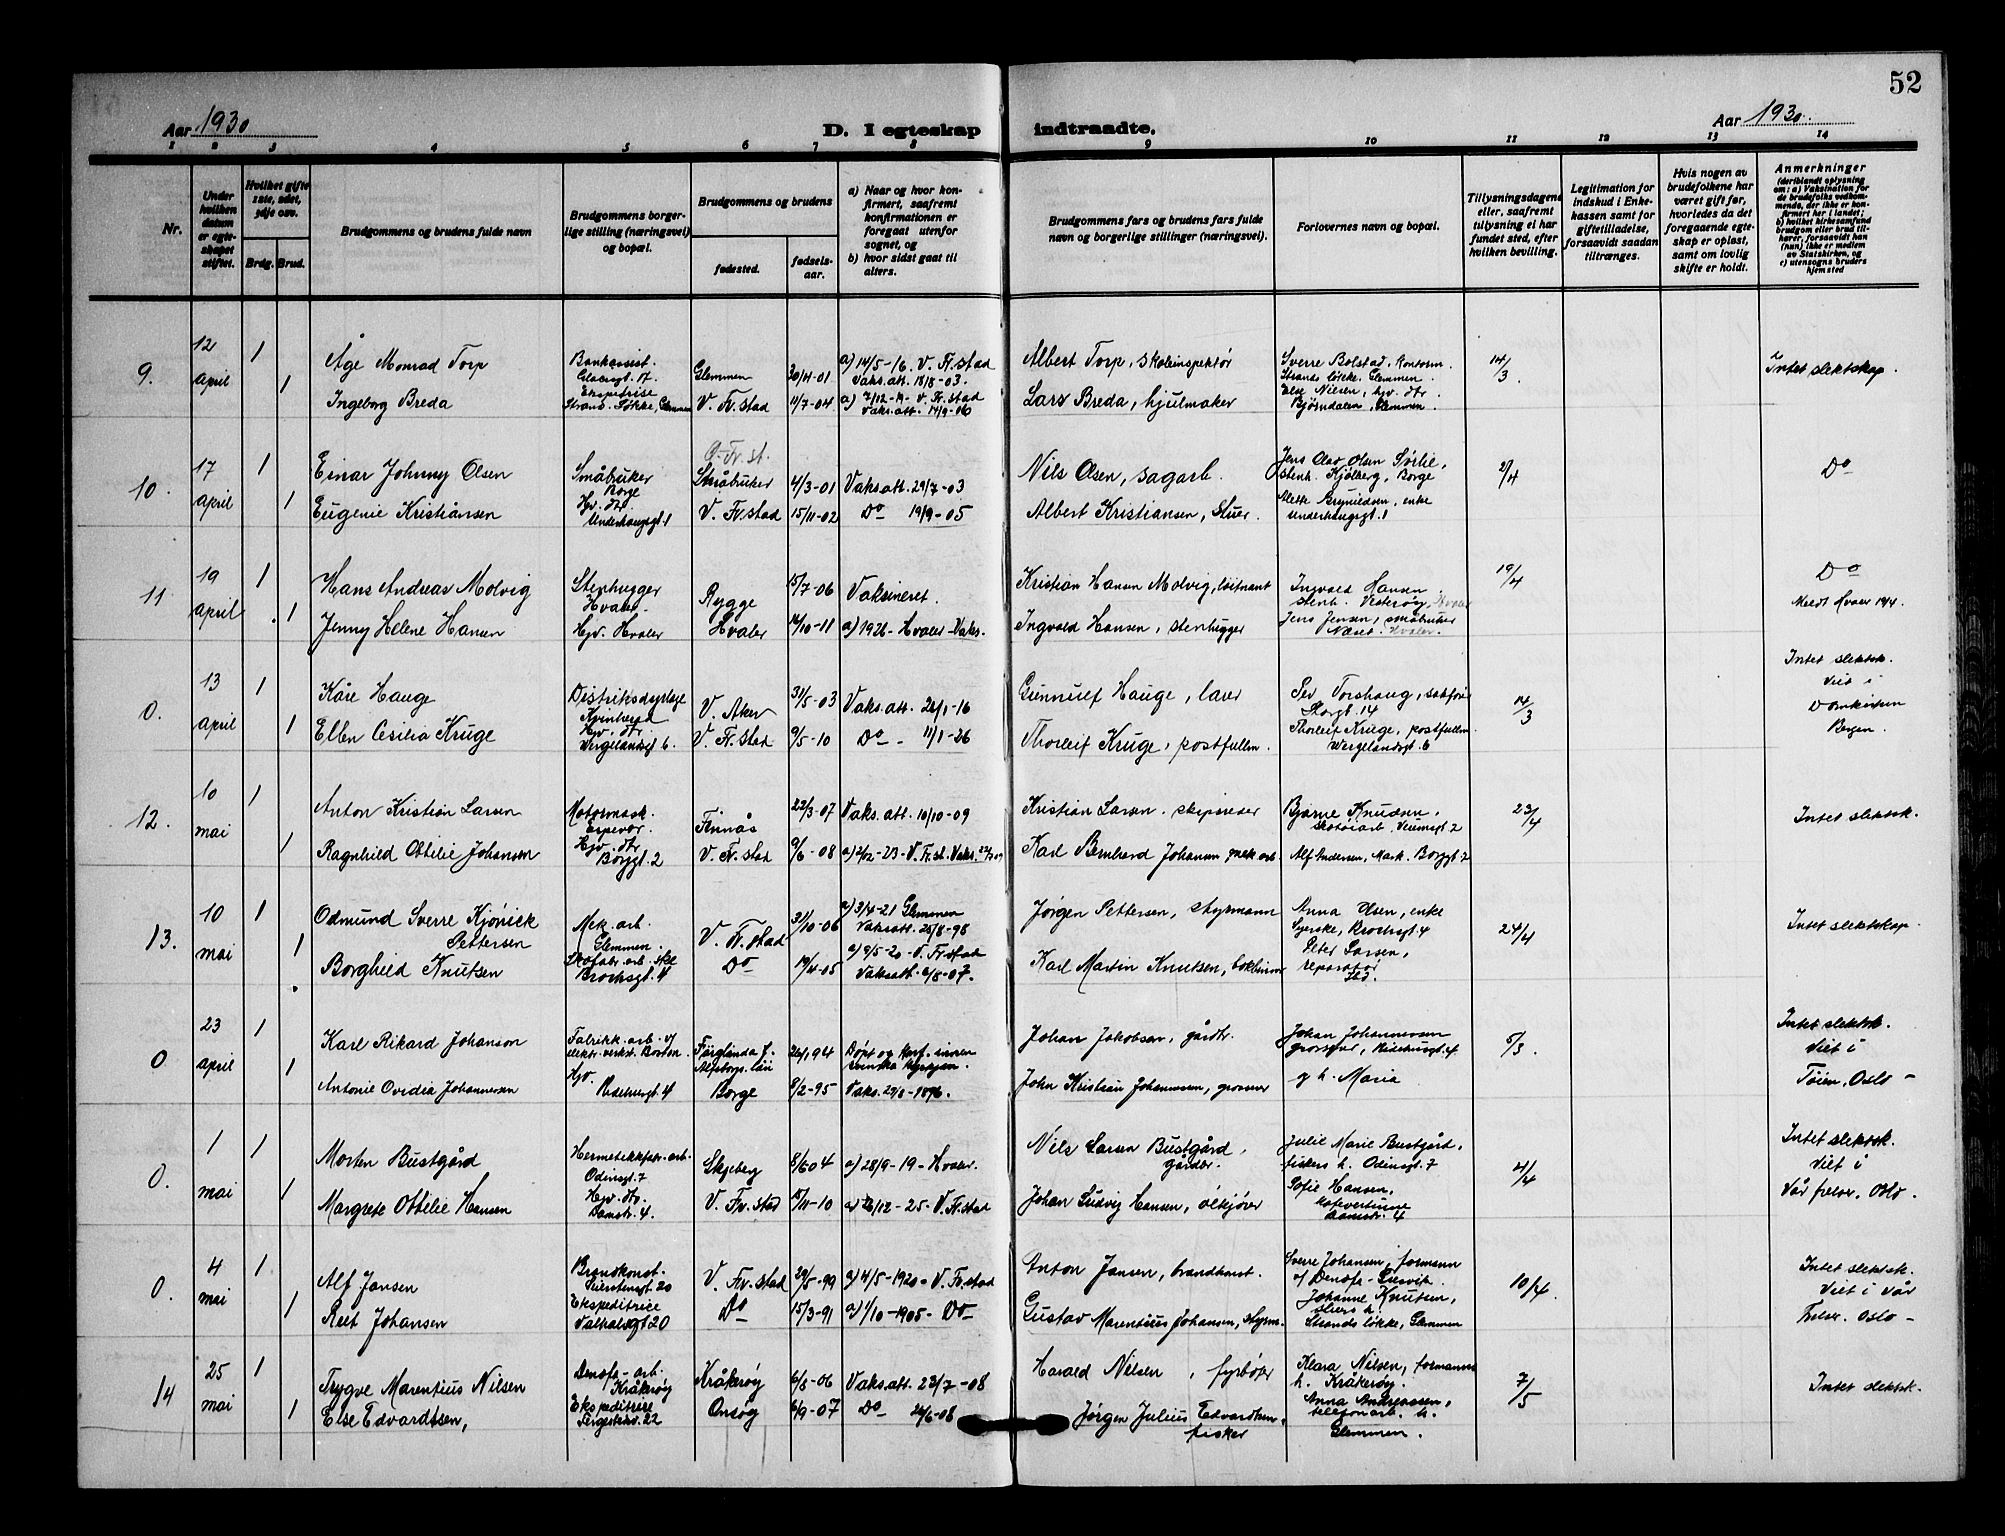 52
Aar 1930
D. I egteskap indtraadte.
Aar 1930.
1 2 3 4 5 6 7 8 9 10 11 12 13 14
Nr.
Under
hvilken
datum
er egte-
skapet
stiftet.
Hvilket gifte
1ste, 2det,
3dje osv.
Brdg. Brud.
Brudgommens og brudens fulde navn
Brudgommens borger-
lige stilling (næringsvei)
og bopæl.
Brudgommens og brudens
fødested.
fødsels-
aar.
a) Naar og hvor kon-
firmert, saafremt
konfirmationen er
foregaat utenfor
sognet, og
b) hvor sidst gaat til
alters.
Brudgommens fars og brudens fars fulde
navn og borgerlige stillinger (næringsvei).
Forlovernes navn og bopæl.
Tillysningsdagene
eller, saafremt
tillysning ei har
fundet sted, efter
hvilken bevilling.
Legitimation for
indskud i Enke-
kassen samt for
giftetilladelse,
forsaavidt saadan
tiltrænges.
Hvis nogen av
brudefolkene har
været gift før,
hvorledes da det
foregaaende egte-
skap er opløst,
samt om lovlig
skifte er holdt.
Anmerkninger
(deriblandt oplysning
om: a) Vaksination for
de brudefolks vedkom-
mende, der ikke er kon-
firmert her i landet;
b) hvilket kirkesamfund
brudgom eller brud til-
hører, forsaavidt han
(hun) ikke er medlem
av Statskirken, og
c) utensogns bruders
hjemsted
9. 12 april 1 1
Åge Monrad Torp
Ingeborg Breda
Bankassist.
Ekspetrise
Strands Løkke, Glemmen
Glemmen 30/4-01
V. Fr.stad 11/7-04
a) 14/5-16. V. Fr.stad
Vaks.att. 18/8-03.
a) 7/12-19- V. Fr.stad
Vaks.att. 14/9-06
Albert Torp, skoleinspektør
Lars Breda, hjulmaker
Sverre Bolstad, kontorm.
Strands løkke, Glemmen.
Else Nielsen, hjv. dtr.
Bjørndalen, Glemmen.
14/3.
Intet slektskap.
10. 17 april 1 1
Einar Johnny Olsen
Eugenie Kristiansen
Småbruker
Borge
Hjv. dtr.
Underhaugsgt. 1
Ø. Fr.st.
Småbruker 4/3-01
V. Fr.stad 15/11-02
Vaks.att. 29/7-03
Do 19/9-05
Nils Olsen, sagarb.
Albert Kristiansen, stuer.
Jens Olav Olsen Sørlie,
stenh. Kjølberg, Borge
Alette Brynildsen, enke
Underhaugsgt. 1
2/4
Do
11 19 april 1 1
Hans Andreas Molvig
Jenny Helene Hansen
Stenhugger
Hvaler.
Hjv. Hvaler
Rygge 15/7-06
Hvaler 14/10-11
Vaksineret.
a) 1926- Hvaler -Vaks.
Kristian Hansen Molvig, løitnant
Ingvald Hansen, stenhugger
Ingvald Hansen
stenh. Vesterøy, Hvaler
Jens Jensen, småbruker
Næset. Hvaler.
19/4
Do
Meldt Hvaler 19/4.
0. 13 april 1 1
Kåre Hauge
Ellen Cesilia Kruge
Distriktsdyrlæge
Kvinherad
Hjv. dtr.
Vergelandsgt 6.
V. Aker 31/5-03
V. Fr.stad 9/5-10
Vaks.att. 26/1-16
Do - 11/1-26
Gunnulf Hauge, lærer
Thorleif Kruge, postfullm.
Per Torshaug, sakfører
Storgt. 14
Thorleif Kruge, postfullm.
Vergelandsgt. 6
14/3
Intet slektsk.
Viet i
Domkirken
Bergen.
12. 10 mai 1 1
Anton Kristian Larsen
Ragnhild Ottilie Johansen
Motormask.
Espevær.
Hjv. dtr.
Borggt. 2
Finnås 22/3-07
V. Fr.stad 9/6-08
Vaks.att. 10/10-09
a) 2/12-23- V. Fr.st. Vaks.
Kristian Larsen. skipsreder
Karl Bernhard Johansen mek.arb.
Bjarne Knudsen,
skotøiarb. Veumsgt 2
Alf Andersen, Mask. Borggt. 2
23/4
Intet slektsk.
13. 10 mai 1 1
Odmund Sverre Kjønick
Pettersen
Borghild Knutsen
Mek. arb.
Glemmen.
Skofabr. arb. ske
Brochsgt. 4
V. Fr.stad 31/10-06
Do 19/4-05
a) 3/4-21 Glemmen
Vaksatt. 25/8-98
a) 9/5-20- V. Fr.stad
Vaksatt. 6/8-07.
Jørgen Pettersen, styrmann
Karl Martin Knutsen, bokbinner
Anna Olsen, enke
Syerske, Brochsgt. 4
Peter Larsen,
reparatør
Ibd.
24/4
Intet slektskap.
0 23 april 1 1
Karl Rikard Johanson
Antonie Ovidia Johannesen
Fabrikk. arb. v/
elektr. verkst. Borton.
Hjv.
Ridehusgt. 4
Färglanda f.
Älfsborgs län 26/1 94
Borge 8/2-95
Døpt og konf. innen
Svenska kyrkjan.
Vaks. 29/8-1896.
Johan Jakobsen, gårdbr.
John Kristian Johannesen, grosserer
Johan Johannessen
grosserer, Ridehusgt. 4
g h. Maria
5/3.
Intet slektsk.
Viet i
Tøien, Oslo -
0. 1 mai 1 1
Morten Bustgård
Margrete Ottilie Hansen
Hermetikkfabr. arb.
Odinsgt. 7
Hjv. dtr.
Damstr. 4.
Skjeberg 8/6 04
V. Fr.stad 15/11-10
a) 28/9-19- Hvaler.
a) 26/12-25- V. Fr.stad
Nils Larsen Bustgård,
gårdbr.
Johan Ludvig Hansen, ølkjører
Julie Marie Bustgård,
fiskers h. Odinsgt. 7
Sofie Hansen,
kafevertinne
Damstr. 4
4/4
Intet slektsk.
Viet i
Vår frelser, Oslo.
0. 4 mai 1 1
Alf Jansen
Reit Johansen
Brandkonst.
20
Ekspeditrice
Valhalsgt 20
V. Fr.stad 29/5-99
Do 15/3-91
a) 4/5-1920- V. Fr.stad
a) 1/10-1905- Do
Anton Jansen, brandkonst.
Gustav Marentius Johansen, styrm.
Sverre Johansen, formann
v/ Denofa- Lisvik.
Johanne Knutsen,
stuers h.
Strands løkke, Glemmen
10/4.
Intet slektsk.
Viet i Vår
Frelser. Oslo -
14 25 mai 1 1
Trygve Marentius Nilsen
Else Edvardsen,
Denofa- arb.
Kråkerøy
Ekspeditrise
22
Kråkerøy 6/8-06
Onsøy 6/9-07
Vaks.att. 23/7-08
Do 24/6-08
Harald Nilsen, fyrbøter
Jørgen Julius Edvardsen,
fisker
Klara Nilsen, formanns
h. Kråkerøy.
Anna Andreassen,
telefonarb. h.
Glemmen.
7/5
Intet slektsk.